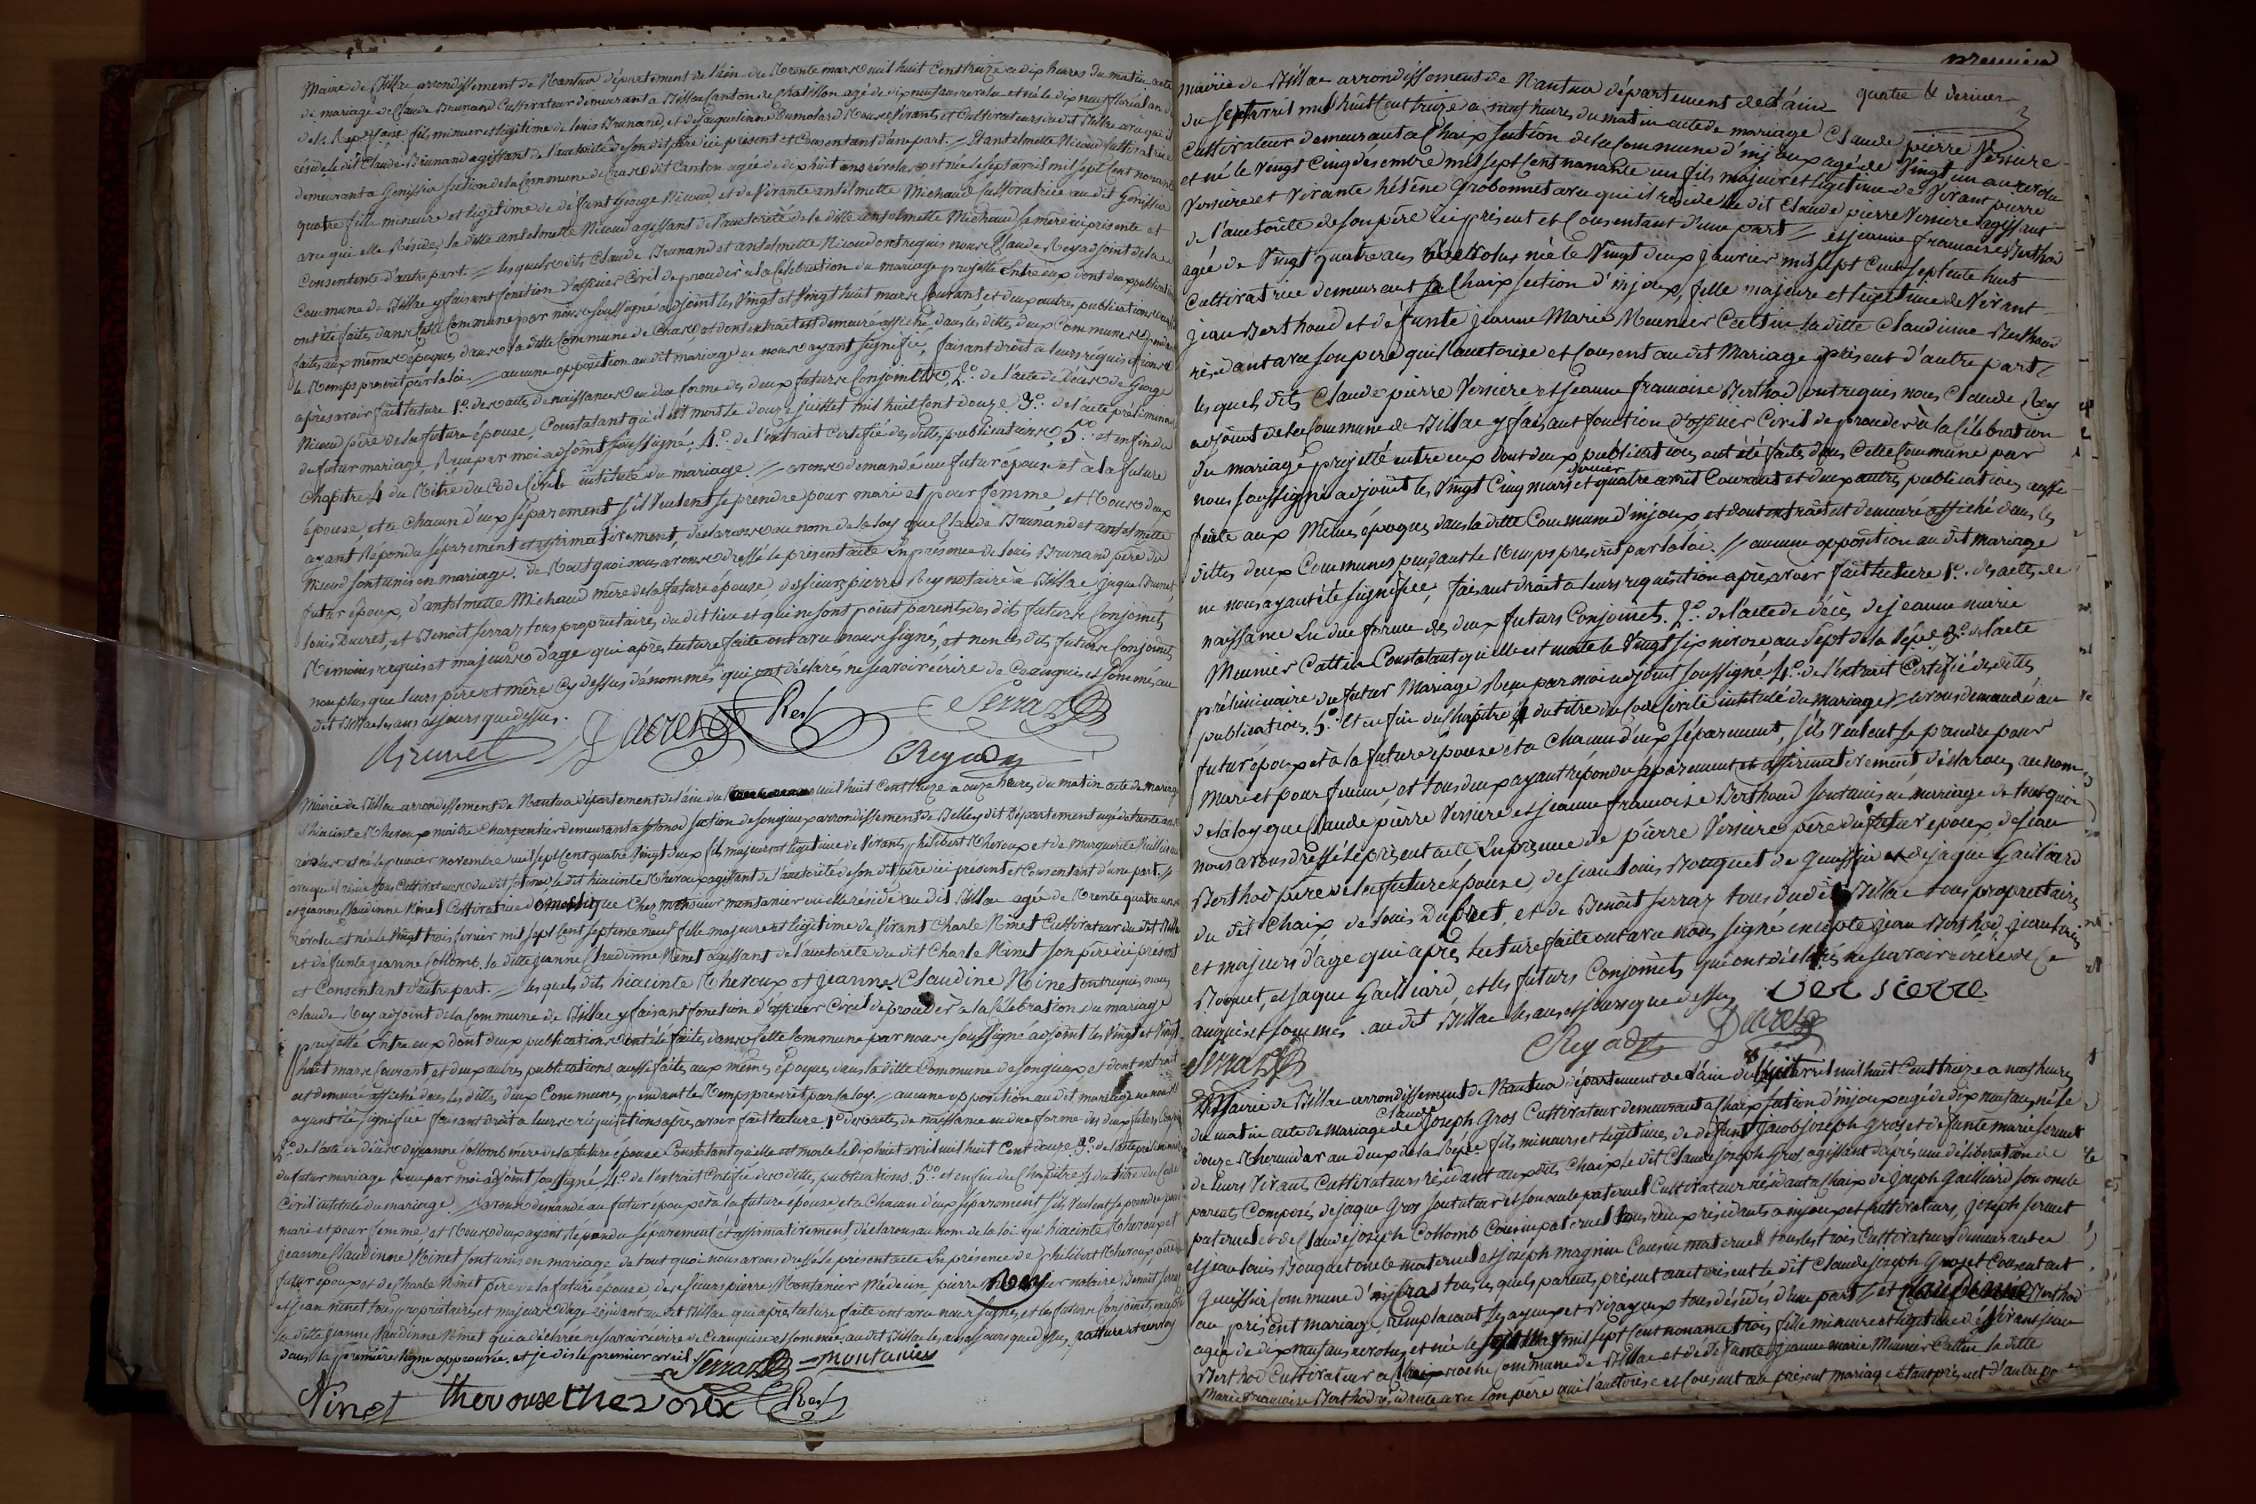 Mairie de Billiac arrondissement de Nantua département de l'ain du trente mars mil huit cent treize a dix heures du matin acte
de mariage de Claude Brunand Cultivateur demeurant a Billiac Canton de Chatillon agé de dix neuf ans revolu et né le dix neuf floréal an
fils mineur et légitime de louis Brunand, et de jaqueline Dumolard tous vivants et Cultivateurs du dit Billiac avec qui il
réside le dit Claude Brunand agissant de l'autorité de son dit père ici présent et Consentant d'une part. = et anselmette Nicoud Cultivatrice
demeurant a Genissia section de la Commune de Craz dit Canton agée de dix huit ans révolus et née le sept avril mil sept cent nonante
quatre fille mineure et legitime de défunt George Nicoud, et de vivante anselmette Michaud Cultivatrice au dit Genissia
avec qui elle Réside, la ditte anselmette Nicoud agissant de l'autorité de la ditte anselmette Michaud sa mère ici présente et
Consentente d'autre part. = lesquels dits Claude Brunand et anselmette Nicoud ont requis nous Claude Rey adjoint de la
Commune de Billiac y faisant fonction d'officier Civil de proceder à la Célébration du mariage projetté Entre eux dont deux publications
ont été faites dans cette Commune par nous soussigné adjoint les vingt et vingt huit mars courant, et deux autres publications aussi
faites aux mêmes époques dans la ditte Commune de Craz, et dont extrait est demeuré affiché dans les dittes deux Communes pendant
le temps prescrit par la loi. = aucune opposition au dit mariage ne nous ayant signifié, faisant droit a leurs réquisitions
après avoir fait lecture 1°. des actes de naissance en due forme des deux futurs Conjoints, 2°. de l'acte de décès de George
Nicoud père de la future épouse, Constatant qu'il est mort le douze juillet mil huit cent douze 3°. de l'acte préliminaire
du futur mariage Reçu par moi adjoint soussigné, 4°. de l'extrait Certifié des dittes publications, 5°. et enfin du
Chapitre 4 du titre du Code Civil intitulé du mariage. = avons demandé au futur époux et à la future
épouse, et a chacun d'eux séparement s'ils veulent se prendre pour mari et pour femme, et tous deux
ayant Répondu séparement et affirmativement, déclarons au nom de la loy que Claude Brunand et anselmette
Nicoud sont unis en mariage. de tout quoi nous avons dressé le présent acte En présence de louis Brunand père du
futur époux, d'anselmette Michaud mère de la future épouse, des sieurs pierre Rey notaire à Billiac, jaque Brunet,
louis Ducret, et Benoit serraz tous propriétaires du dit lieu et qui ne sont point parents des dits futurs Conjoints
témoins requis et majeurs d'age qui après lecture faite ont avec nous signés, et non les dits futurs Conjoints
non plus que leurs père et mère Cy dessus dénommés qui ont déclaré ne savoir écrire de Ce enquis et sommés au
dit Billiac les ans et jours que dessus.
Brunet Ducret Rey Serraz
CRey adj
Mairie de Billiac arrondissement de Nantua département de l'ain du mil huit cent treize a onze heures du matin acte de mariage
d'hiacinte theroux maitre Charpentier demeurant section de Songieux arrondissement de Belley dit Département agé de trente ans
révolus et né le premier novembre mil sept cent quatre vingt deux fils majeur et legitime de vivants philibert theroux et de marguerite
avec qui il réside tous cultivateurs du dit le dit hiacinte theroux agissant de l'autorité de son dit père ici présent et Consentant d'une part. =
et jeanne Claudinne Ninet Cultivatrice domestique Chez monsieur montanier ou elle réside au dit Billiac agée de trente quatre ans
révolu et née le vingt trois février mil sept cent septente neuf fille majeure et legitime de vivant Charle Ninet Cultivateur du dit Billiac
et de funte jeanne Collomb. la ditte jeanne Claudinne Ninet agissant de l'autorité du dit Charle Ninet son père ici présent
et Consentant d'autre part. = lesquels dits hiacinte theroux et jeanne Claudine Ninet ont requis nous
Claude Rey adjoint de la Commune de Billiac y faisant fonction d'officier Civil de proceder a la Célébration du mariage
projetté Entre eux dont deux publications ont été faites dans cette Commune par nous soussigné adjoint les vingt et vingt
huit mars courant, et deux autres publications aussi faites aux mêmes époques dans la ditte Commune de Songieux et dont extrait
est demeuré affiché dans les dittes deux Communes pendant le temps prescrit par la loy. = aucune opposition au dit mariage ne nous
ayant été signifiée faisant droit a leurs réquisitions après avoir fait lecture 1° des actes de naissance en due forme des deux futurs Conjoints
2°. de l'acte de décès de jeanne Collomb mère de la future épouse Constatant qu'elle est morte le dix huit avril mil huit cent douze 3°. de l'acte préliminaire
du futur mariage Reçu par moi adjoint soussigné 4°. de l'extrait Certifié des dittes publications. 5°. et enfin du Chapitre 4 du titre du Code
Civil intitulé du mariage. = avons demandé au futur époux et à la future épouse, et a Chacun d'eux séparement s'ils veulent se prendre pour
mari et pour femme, et tous deux ayant répondu séparement et affirmativement, déclarons au nom de la loi qu'hiacinte theroux et
jeanne Claudinne Ninet sont unis en mariage de tout quoi nous avons dressé le présent acte En présence de philibert theroux, père du
futur époux et de Charle Ninet père de la future épouse des sieurs pierre Montanier Médecin, pierre Rey notaire Benoit serraz
et jean ninet tous propriétaires et majeurs d'age résidant au dit Billiac qui après lecture faite ont avec nous signés, et les futurs Conjoints excepté
la ditte jeanne Claudinne Ninet qui a déclarée ne savoir écrire de Ce enquise et sommée, au dit Billiac les ans et jours que dessus, rature et renvoy
dans la première ligne approuvée. et je dis le premier avril. Serraz = Montanier
Ninet theroux theroux CRey
Mairie de Billiac arrondissement de Nantua département de L'ain quatre & dernier
du sept avril mil huit Cent treize a neuf heures du matin acte de mariage Claude pierre Versiere
Cultivateur demeurant a Chaix section de la Commune d'injoux agé de vingt un an revolu
et né le vingt Cinq désembre mil sept cent nonante un fils majeur et legitime de vivant pierre
Versiere et vivante hélène Grobonnet avec qui il réside le dit Claude pierre Versiere agissant
de l'autorité de son père ici présent et Consentant d'une part = et jeanne francoise Berthod
agée de vingt quatre ans révolus née le vingt deux janvier mil sept Cent septente huit
Cultivatrice demeurant a Chaix section d'injoux, fille majeure et legitime de vivant
jean Berthoud et défunte jeanne Marie Meunier Cattin la ditte Claudinne Berthoud
résidant avec son père qui l'autorise et Consent au dit Mariage present d'autre part =
les quels dits Claude pierre Versiere et jeanne francoise Berthod ont requis nous Claude Rey
adjoint de la Commune de Billiac y faisant fonction d'officier Civil de proceder à la Célébration
du mariage projetté entre eux dont deux publications ont été faites dans Cette Commune par
nous soussigné adjoint les vingt Cinq mars dernier et quatre avril Courant et deux autres publications aussi
faite aux Mêmes époques dans la ditte Commune d'injoux et dont extrait est demeuré affiché dans les
dittes deux Communes pendant le temps prescrit par la loi. = aucune opposition au dit mariage
ne nous ayant été signifiée, faisant droit a leurs requisition après avoir fait lecture 1°. des actes de
naissance En due forme des deux futurs Conjoints. 2°. de l'acte de décès de jeanne marie
Meunier Cattin Constatant qu'elle est morte le vingt six nivose an sept de la Rép 3°. de l'acte
préliminaire du futur Mariage Reçu par moi adjoint soussigné 4°. de l'extrait Certifié des dittes
publications. 5°. et en fin du Chapitre 4 du titre du Code Civil intitulé du mariage = avons demandé au
futur époux et à la future épouse et a Chacun d'eux séparement, s'ils veulent se prendre pour
Mari et pour femme, et tous deux ayant répondu séparement et affirmativement déclarons, au nom
de la loy que Claude pierre Versiere et jeanne francoise Berthoud sont unis en mariage de tout quoi
nous avons dressé le présent acte En présence de pierre Versiere père du futur époux, de jean
Berthod père de la future épouse, de jean louis Bouquet de Genissia et de jaque Gailliard
du dit Chaix de louis Ducret, et de Benoit serraz tous du dit Billiac tous propriétaires
et majeurs d'age qui après lecture faite ont avec nous signé excepté jean Berthod, jean louis
Boquet, et jaque Gailliard, et les futurs Conjoints qui ont déclarés ne savoir écrire de Ce
enquis et sommés au dit Billiac les ans et jours que dessus Versierre
Serraz CRey adj Ducret
Mairie de Billiac arrondissement de Nantua département de l'ain du huit avril mil huit Cent treize a neuf heures
du matin acte de Mariage de Claude Joseph Gros Cultivateur demeurant a Chaix section d'injoux agé de dix neuf ans, né le
douze thermidor an deux de la Rép fils mineurs et legitime, de defunt Jacob joseph Gros et de funte marie sermet
de leurs vivants Cultivateurs résidant au dit Chaix le dit Claude Joseph Gros agissant d'après une délibération de
parents Composés de jaque Gros son tuteur et son oncle paternel Cultivateur résidant a Chaix de Joseph Gailliard son oncle
paternel et de Claude joseph Collomb Cousin paternel tous deux présidents a injoux et Cultivateurs, joseph sermet
et jean louis Bouquet oncle maternel et joseph magnin Cousin maternel tous les trois Cultivateurs demeurant en
Genissia Commune d'injCras tous les quels parents, présent autorisent le dit Claude joseph Gros et Consentant
au présent mariage, remplacant les ayeux et Bisayeux tous décédés d'une part = et Berthod
agée de dix neuf ans révolus, et née le mil sept cent nonante trois, fille mineure et legitime de vivant jean
Berthod Cultivateur a Commune de Billiac et de defunte jeanne marie Meunier Cattin la ditte
Marie francoise Berthod résidante avec son père qui l'autorise et Consent au présent mariage étant présent d'autre part